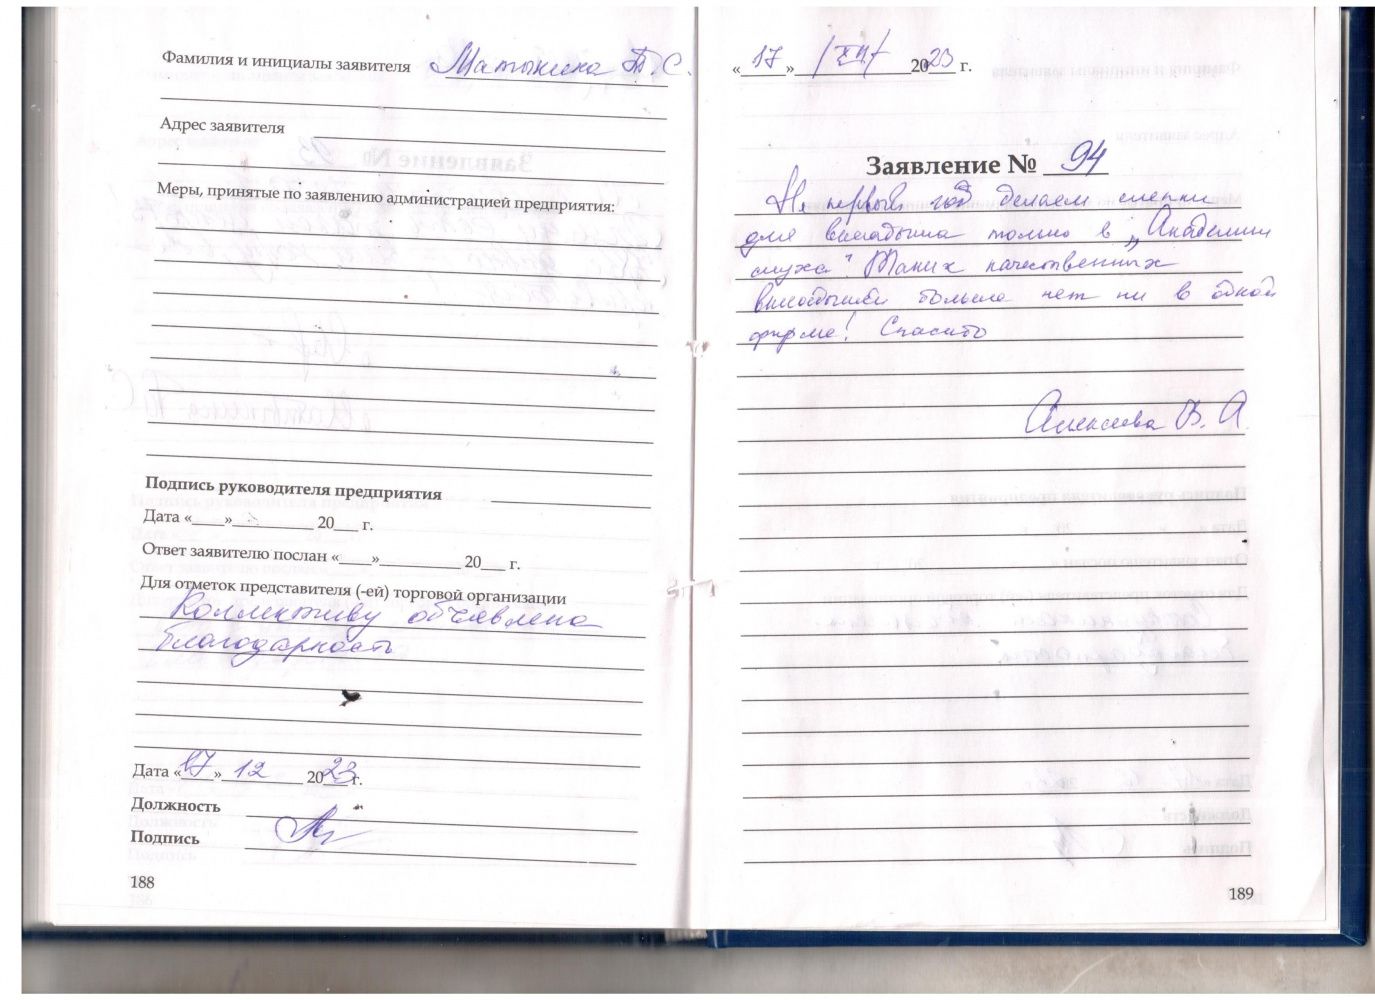 Фамилия и инициалы заявителя Матынина Т. С.
Адрес заявителя
Меры, принятые по заявлению администрацией предприятия:
Подпись руководителя предприятия
Дата «____»__________ 20___ г.
Ответ заявителю послан «____»__________ 20___ г.
Для отметок представителя (-ей) торговой организации
Коллективу объявлена
благодарность
Дата «17» 12 2023 г.
Должность
Подпись
188
«17» /XII/ 2023 г.
Заявление № 94
Не первый год делаем слепки
для вкладыша только в „Академии
слуха". Таких качественных
вкладышей больше нет ни в одной
фирме! Спасибо
Алексеева В. А.
189